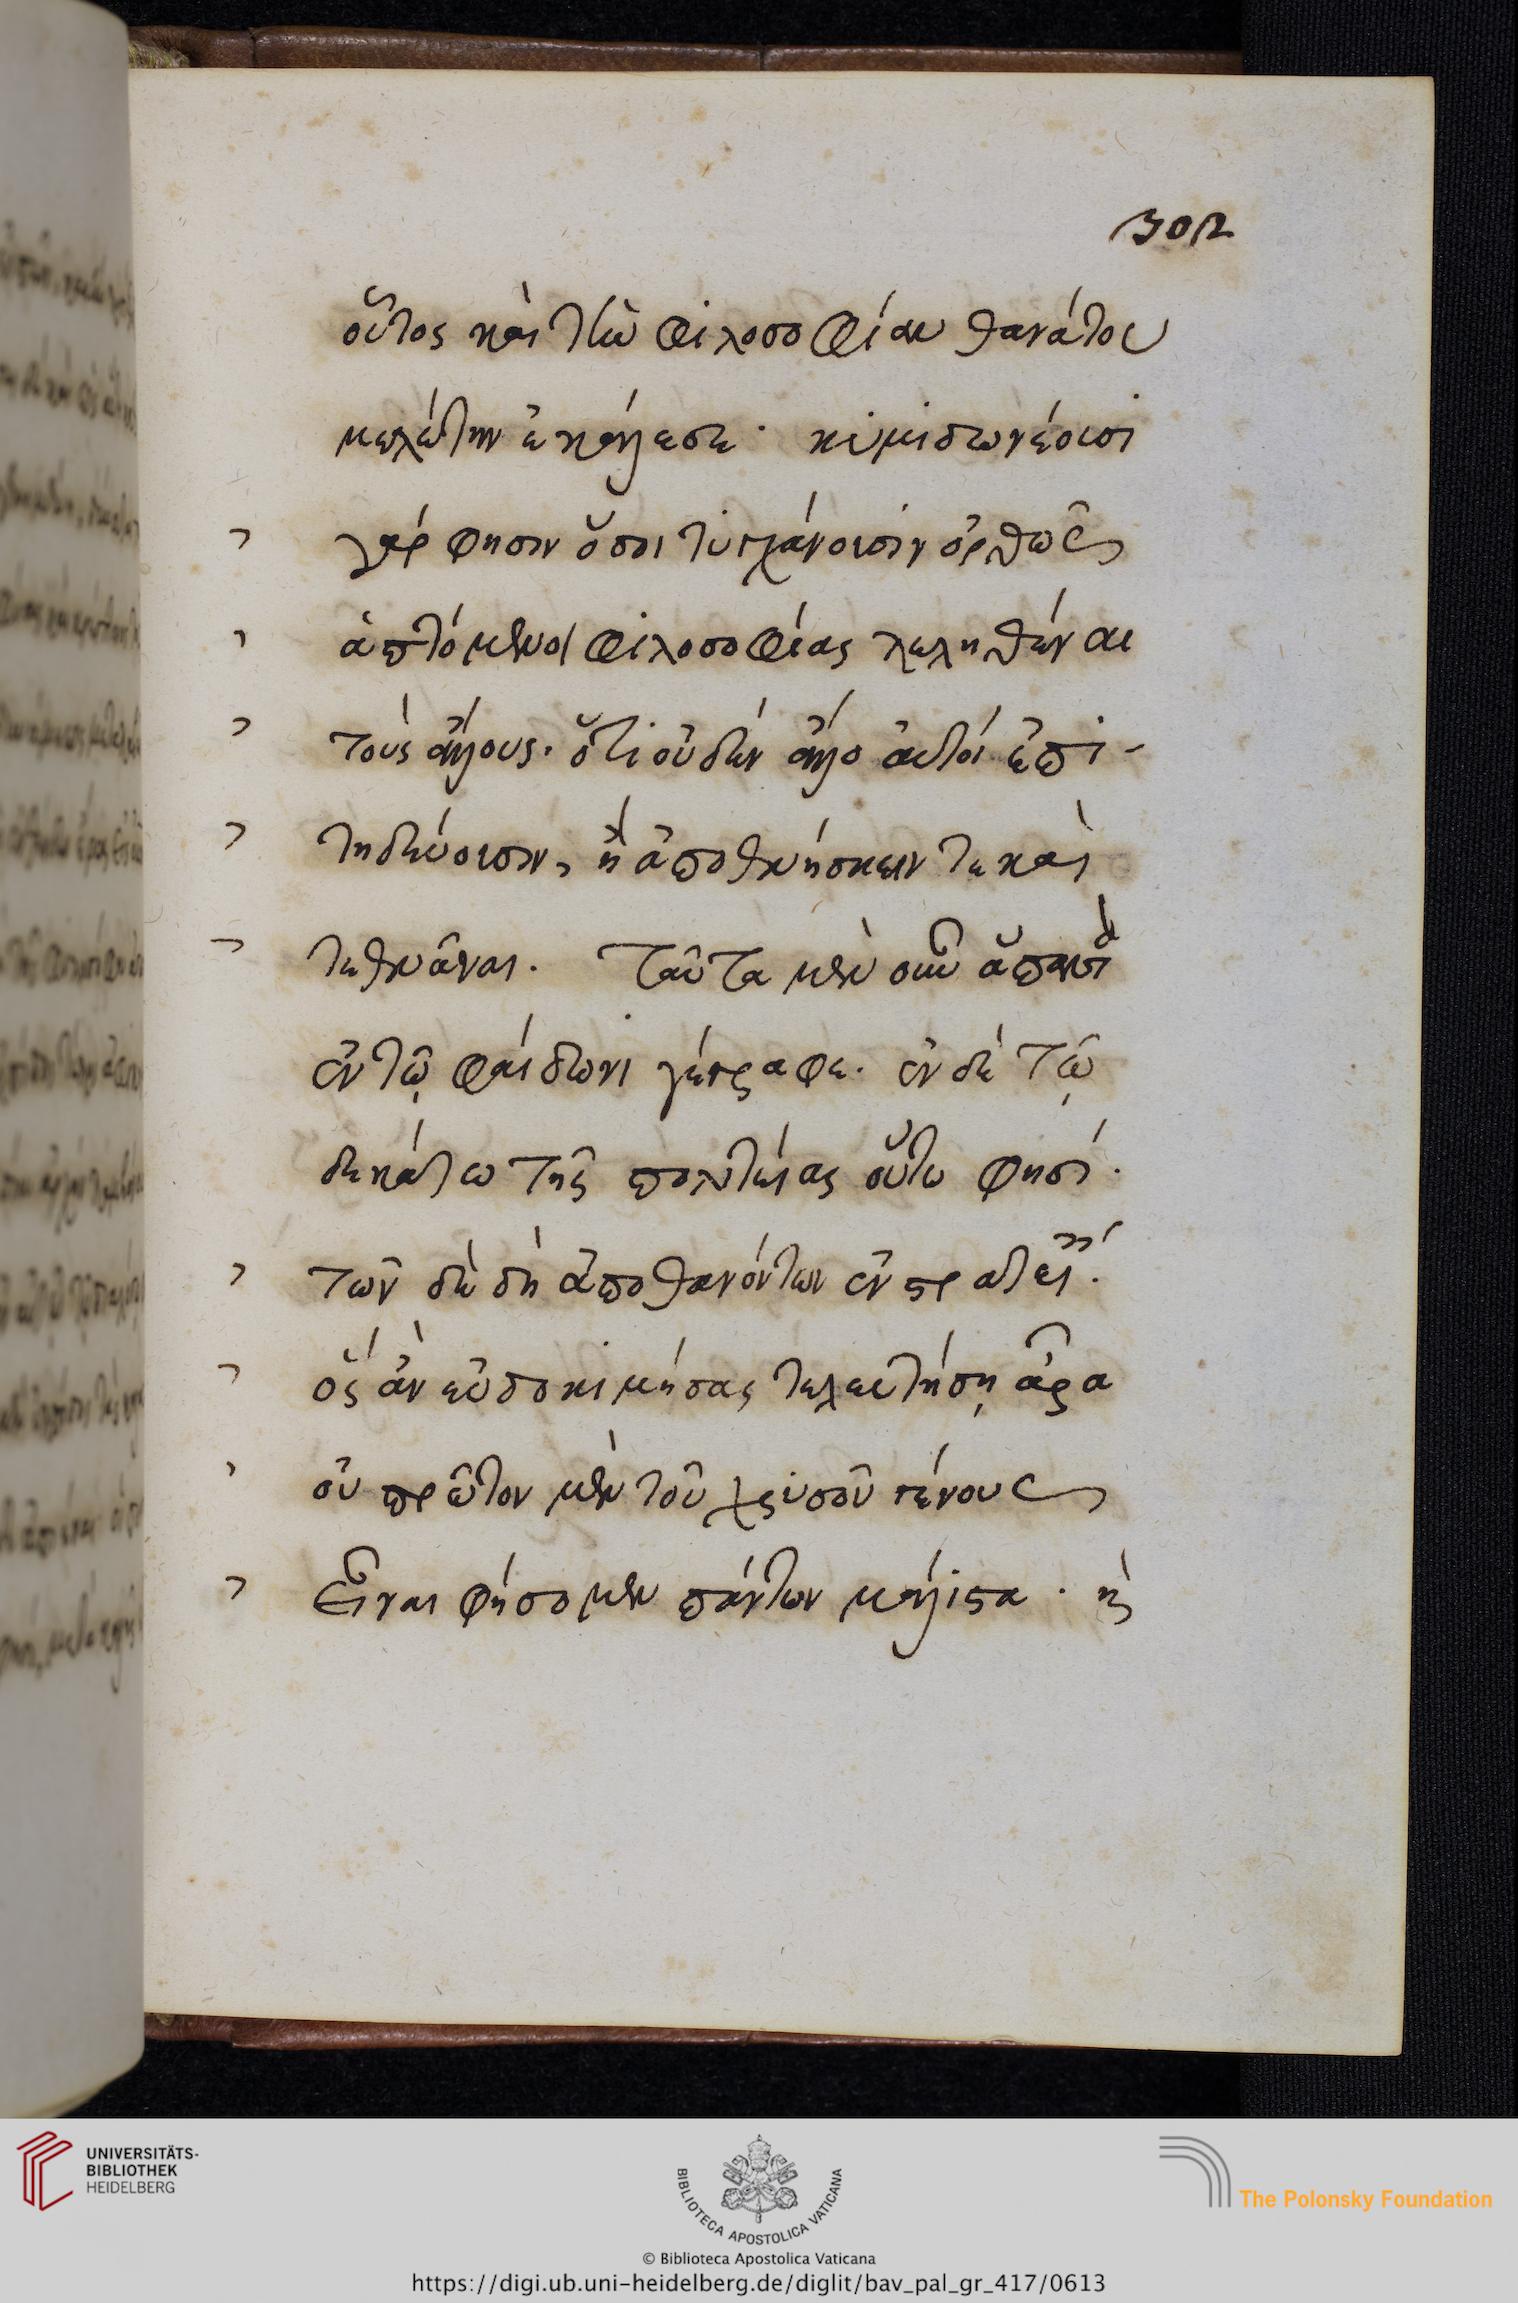 302
οὗτος καὶ τὴν φιλοσοφίαν θανάτου
μελέτην ἐκάλεσε· κινδυνεύουσι
γάρ φησιν ὅσοι τυγχάνουσιν ὀρθῶς
ἁπτόμενοι φιλοσοφίας λεληθέναι
τοὺς ἄλλους. ὅτι οὐδὲν ἄλλο αὐτοὶ ἐπι-
τηδεύουσιν, ἢ ἀποθνήσκειν τε καὶ
τεθνᾶναι. Ταῦτα μὲν οὖν
ἐν τῷ φαίδωνι γέγραφε. ἐν δὲ τῷ
δεκάτω τῆς πολιτείας οὕτω φησί.
τῶν δὲ δὴ ἀποθανόντων
ὃς ἂν εὐδοκιμήσας τελευτήσῃ ἆρα
οὐ πρῶτον μὲν τοῦ χρυσοῦ γένους
εἶναι φήσομεν πάντων μάλιστα·
UNIVERSITÄTS-
BIBLIOTHEK
HEIDELBERG
BIBLIOTECA APOSTOLICA VATICANA
The Polonsky Foundation
© Biblioteca Apostolica Vaticana
https://digi.ub.uni-heidelberg.de/diglit/bav_pal_gr_417/0613